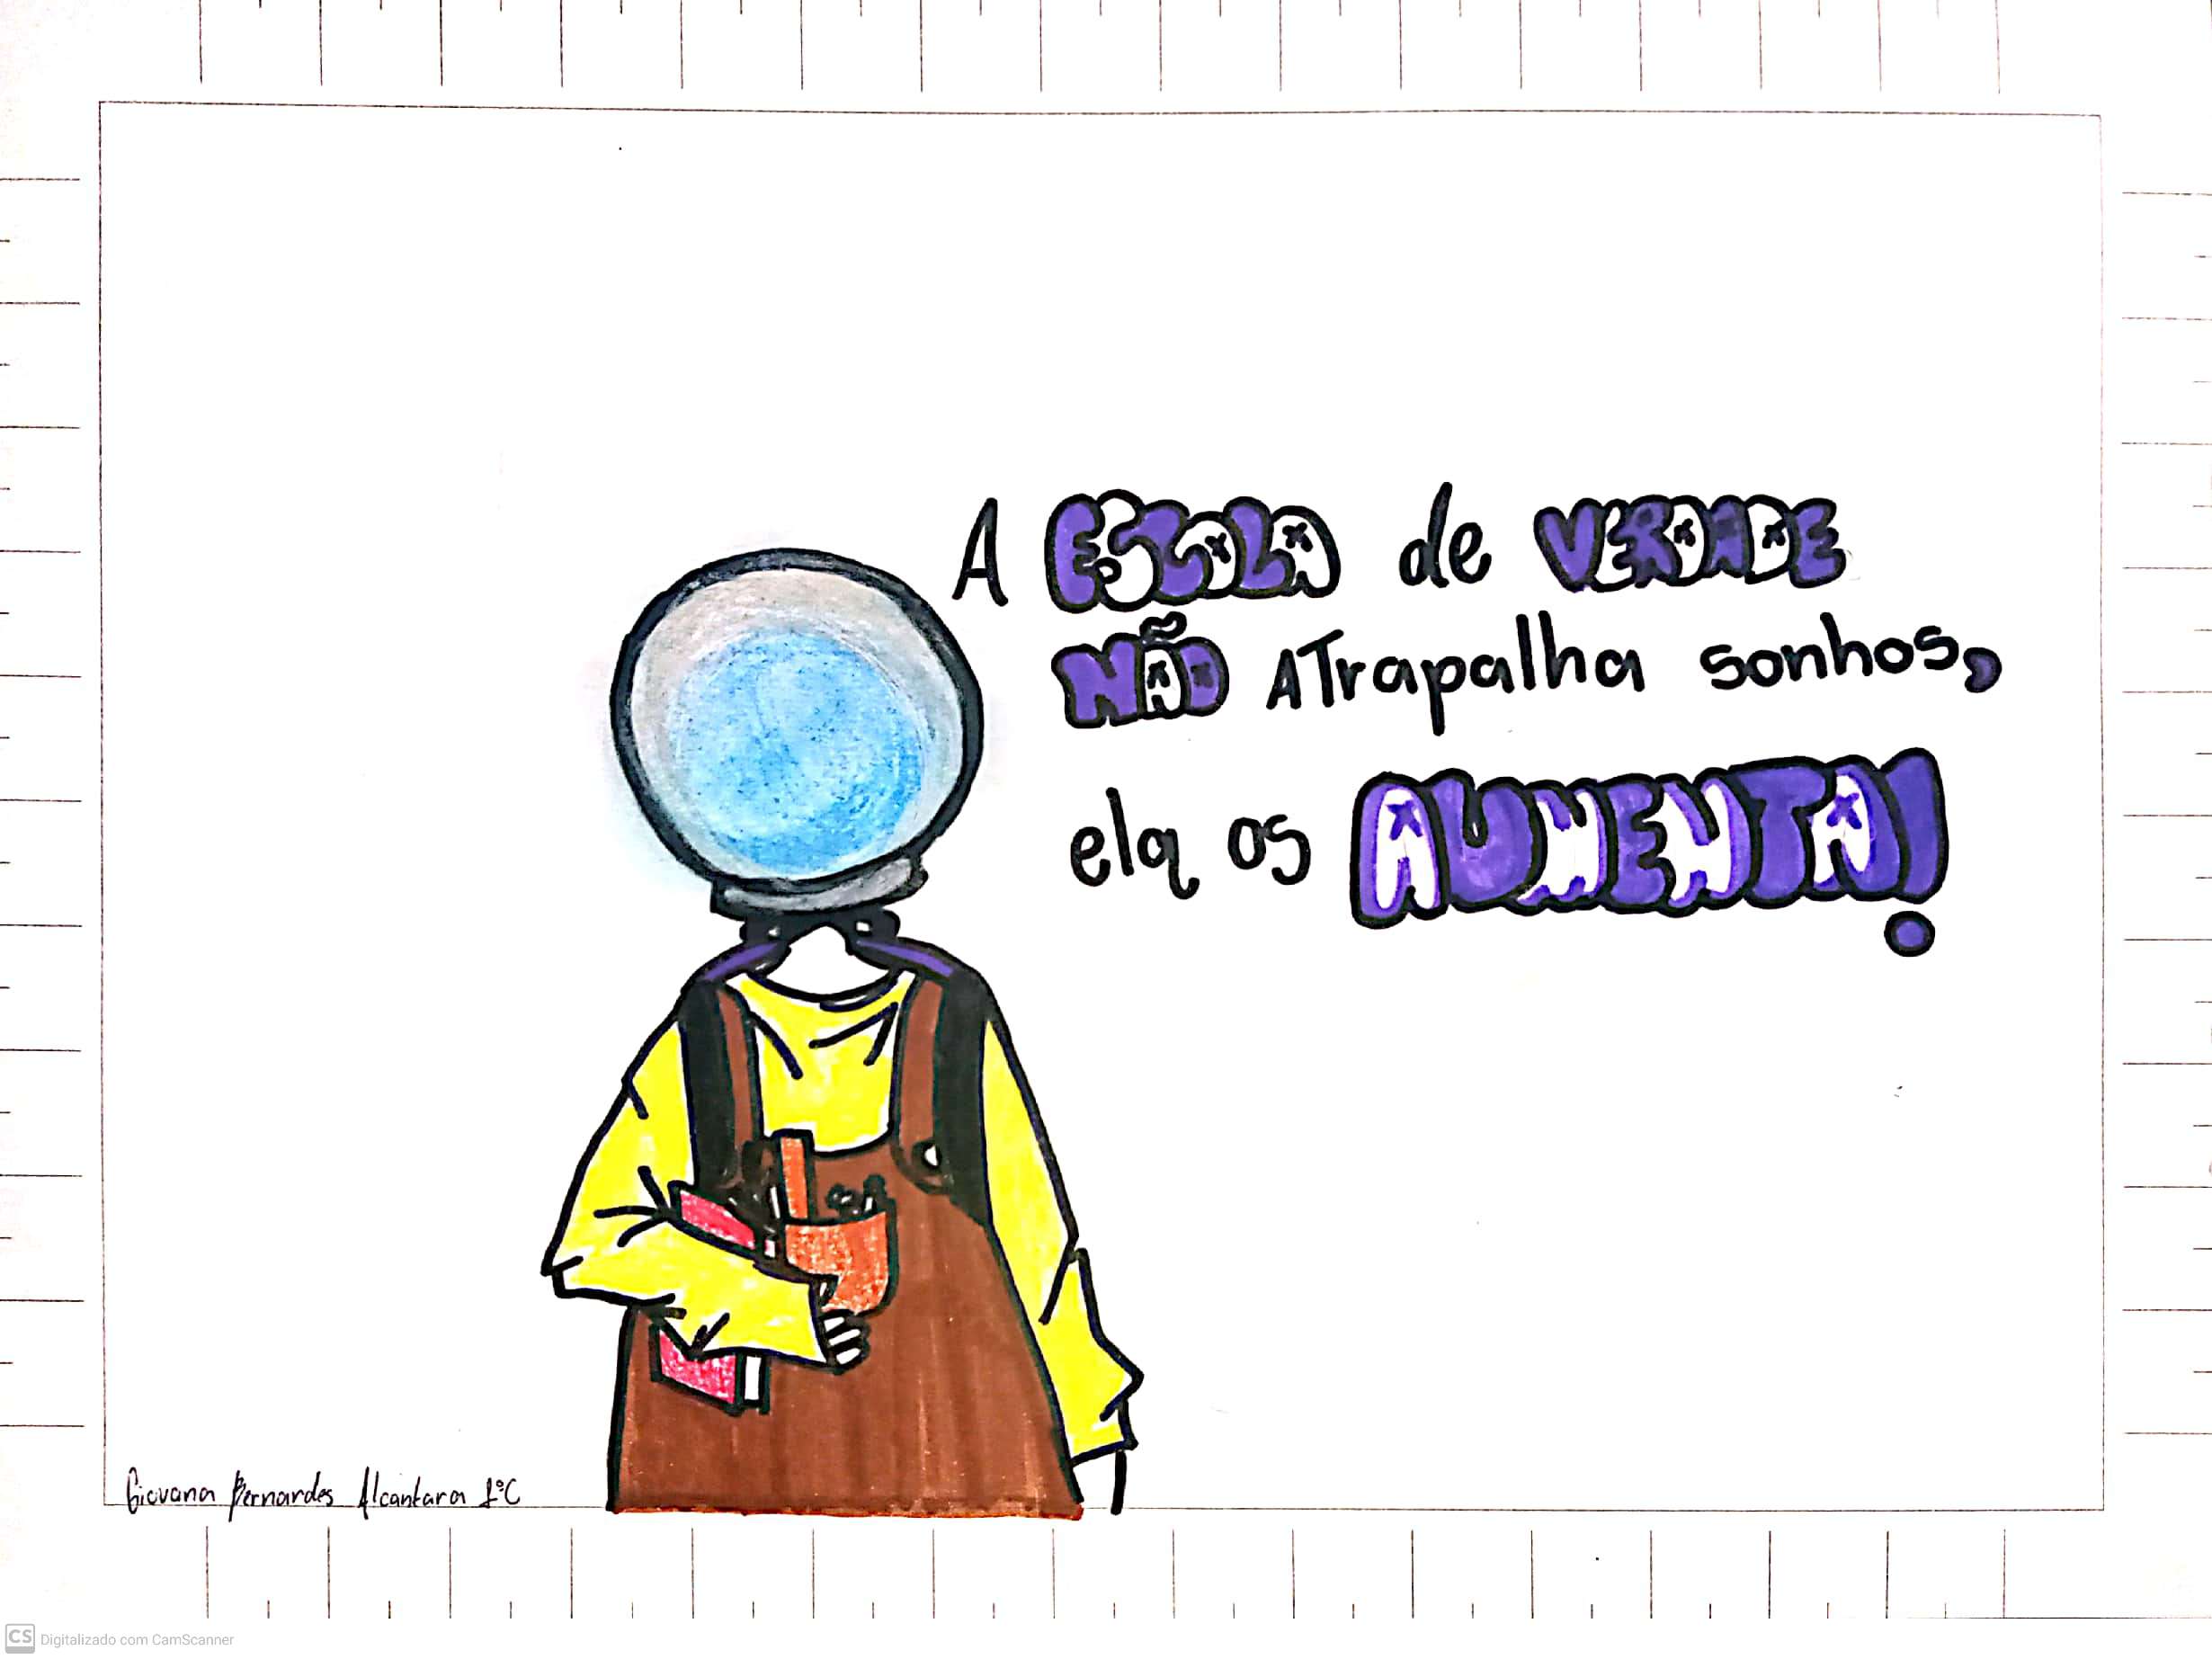 A ESCOLA de VERDADE
NÃO ATrapalha sonhos,
ela os AUMENTA!
Giovana Bernardes Alcantara 1°C
CS Digitalizado com CamScanner